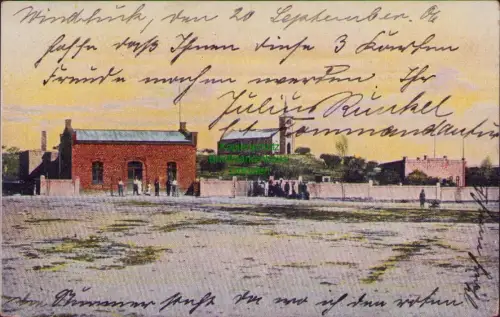 Windhuk, den 20 September. 06
Hoffe daß Ihnen diese 3 Karten
Freude machen werden Ihr
Julius Runkel
Commandantur
Nummer steht da wo ich den roten